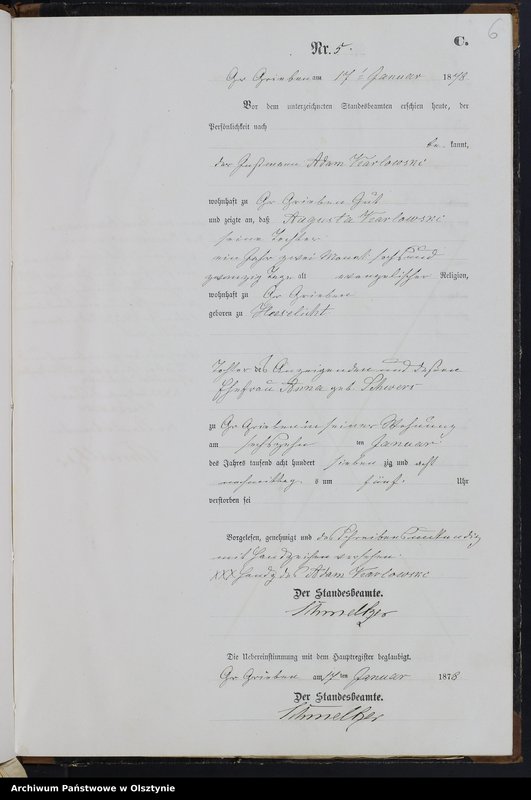 6
Nr. 5.
C.
Gr Grieben am 17t Januar 1878
Vor dem unterzeichneten Standesbeamten erschien heute, der
Persönlichkeit nach
be kannt,
der Instmann Adam Karlowski
wohnhaft zu Gr Grieben Gut
und zeigte an, daß Augusta Karlowski
seine Tochter
ein Jahr zwei Monat sechs und
zwanzig Tage alt evangelischer Religion,
wohnhaft zu Gr Grieben
geboren zu Haeselicht
Tochter des Anzeigenden und deßen
Ehefrau Anna geb Schwers
zu Gr Grieben in seiner Wohnung
am sechszehn ten Januar
des Jahres tausend acht hundert sieben zig und acht
nachmittag s um fünf Uhr
verstorben sei
Vorgelesen, genehmigt und des Schreibens unkundig
mit Handzeichen versehen.
XXX Handz des Adam Karlowski
Der Standesbeamte.
Schmelzer
Die Uebereinstimmung mit dem Hauptregister beglaubigt.
Gr Grieben am 17 ten Januar 1878
Der Standesbeamte.
Schmelzer
Archiwum Państwowe w Olsztynie